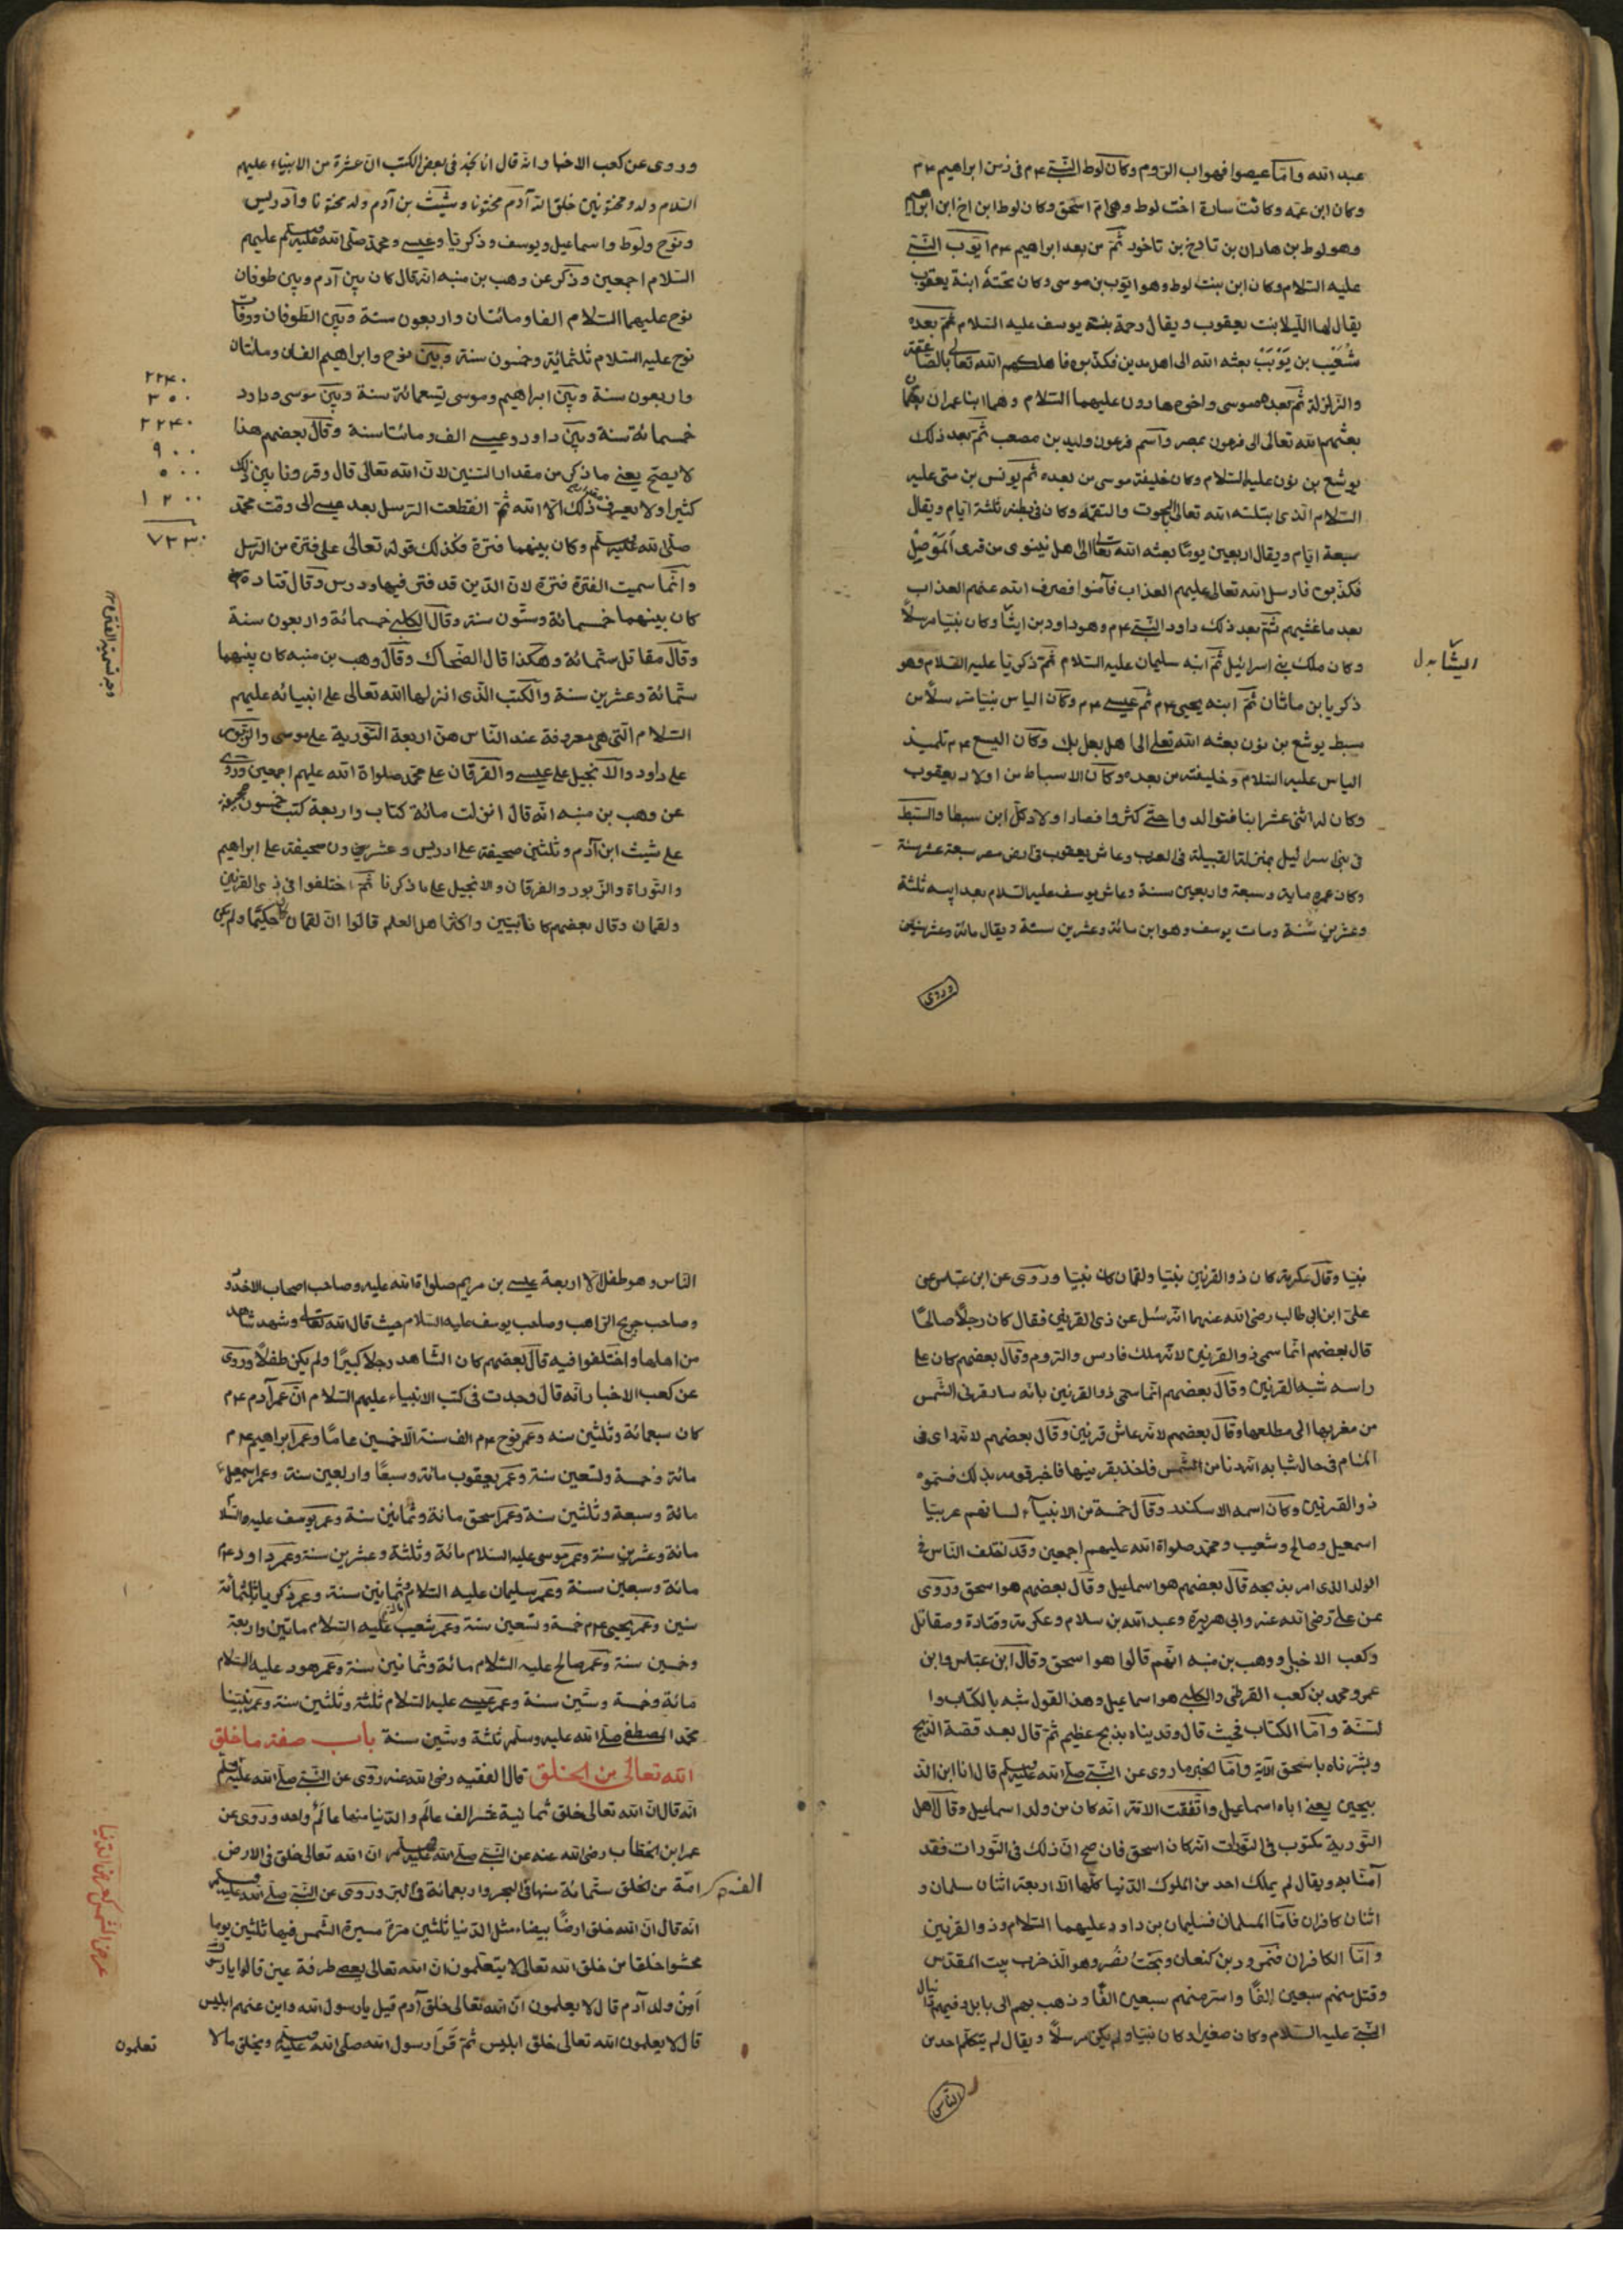 عبد الله وامّا عيصوا فهو اب الرّوم وكان لوط النّبي ع م في زمن ابراهيم ع م
وكان ابن عمّه وكانت سارة اخت لوط وهى امّ اسحق وكان لوط ابن اخ ابن ابراهيم
وهو لوط بن هاران بن تارخ بن تاخود ثمّ من بعد ابراهيم ع م ايّوب النّبي
عليه السّلام وكان ابن بنت لوط وهو ايّوب بن موسى وكان تحته ابنة يعقوب
يقال لها اللّيلا بنت يعقوب ويقال رحمة بنت يوسف عليه السّلام ثمّ بعده
شُعَيْب بن يَوْبَبْ بعثه الله الى اهل مدين فكذّبوه فاهلكهم الله تعالى بالصّاعقة
والزّلزلة ثمّ بعده موسى واخوه هارون عليهما السّلام وهما ابنا عمران
بعثهم الله تعالى الى فرعون بمصر واسم فرعون وليد بن مصعب ثمّ بعد ذلك
يوشع بن نون عليه السّلام وكان خليفة موسى من بعده ثم يونس بن متى عليه
السّلام الّذى ابتلته الله تعالى بالحوت والتقمه وكان في بطنه ثلثة ايّام ويقال
سبعة ايّام ويقال اربعين يومًا بعثه الله تعالى الى اهل نينوى من قرى الموصل
فكذّبوه فارسل الله تعالى عليهم العذاب فآمنوا فصرف الله عنهم العذاب
بعد ما غشيهم ثمّ بعد ذلك داود النّبي ع م وهو داود بن ايشا وكان نبيّا مرسلاً
وكان ملك بني اسرائيل ثمّ ابنه سليمان عليه السّلام ثمّ ذكريّا عليه السّلام وهو
ذكريا بن ماثان ثمّ ابنه يحيى ع م ثمّ عيسى ع م وكان الياس نبيّا مرسلاً من
سبط يوشع بن نون بعثه الله تعالى الى اهل بعل بك وكان اليسع ع م تلميذ
الياس عليه السّلام وخليفته من بعده وكان الاسباط من اولاد يعقوب
وكان له اثنى عشر ابنا فتوالدوا حتّى كثروا فصار اولاد كلّ ابن سبطا والسّبط
في بنى اسرائيل بمنزلة القبيلة في العرب وعاش يعقوب في ارض مصر سبعة عشر سنة
وكان عمره ماية وسبعة واربعين سنة وعاش يوسف عليه السّلام بعد ابيه ثلثة
وعشرين سنة ومات يوسف وهو ابن مائة وعشرين سنة ويقال مائة وعشر سنين
وروى
وروى عن كعب الاخبار انّه قال انا نجد في بعض الكتب انّ عشرة من الانبياء عليهم
السّلام ولدوا مختونين خلق الله آدم مختونا وشيث بن آدم ولد مختونا وادريس
ونوح ولوط واسماعيل ويوسف وذكريّا وعيسى ومحمّد صلّى الله عليه وسلم عليهم
السّلام اجمعين وذكر عن وهب بن منبه انّه قال كان بين آدم وبين طوفان
نوح عليهما السّلام الفا ومائتان واربعون سنة وبين الطّوفان ووفات
نوح عليه السّلام ثلثمائة وخمسون سنة وبين نوح وابراهيم الفان ومائتان
واربعون سنة وبين ابراهيم وموسى تسعمائة سنة وبين موسى وداود
خمسمائة سنة وبين داود وعيسى الف ومائتا سنة وقال بعضهم هذا
لا يصحّ يعنى ما ذكر من مقدار السّنين لانّ الله تعالى قال وقرونا بين ذلك
كثيرا ولا يعرف ذلك الّا الله ثمّ انقطعت الرّسل بعد عيسى الى وقت محمّد
صلّى الله عليه وسلم وكان بينهما فترة فكذلك قوله تعالى على فترة من الرّسل
وانّما سميت الفترة فترة لانّ الدّين قد فتر فيها ودرس وقال قتادة
كان بينهما خمسمائة وستّون سنة وقال الكلبى خمسمائة واربعون سنة
وقال مقاتل ستّمائة وهكذا قال الضّحاك وقال وهب بن منبه كان بينهما
ستّمائة وعشرين سنة والكتب الّذى انزلها الله تعالى على انبيائه عليهم
السّلام الّتى هى معروفة عند النّاس هنّ اربعة التّورية على موسى والزّبور
على داود والانجيل على عيسى والفرقان على محمّد صلواة الله عليهم اجمعين وروى
عن وهب بن منبه انّه قال انزلت مائة كتاب واربعة كتب خمسون صحيفة
على شيث ابن آدم وثلثين صحيفة على ادريس وعشرون صحيفة على ابراهيم
والتّوراة والزّبور والفرقان والانجيل على ما ذكرنا ثمّ اختلفوا في ذى القرنين
ولقمان وقال بعضهم كانا نبيّين واكثر اهل العلم قالوا انّ لقمان كان حكيمًا ولم يكن
٢٢٤٠
٣٥٠
٢٢٤٠
٩٠٠
٥٠٠
١٢٠٠
٧٣٣٠
نبيّا وقال عكرمة كان ذو القرنين نبيّا ولقمان كان نبيّا وروى عن ابن عبّاس عن
علىّ ابن ابى طالب رضى الله عنهما انّه سُئل عن ذى القرنين فقال كان رجلاً صالحًا
قال بعضهم انّما سمى ذو القرنين لانّه ملك فارس والرّوم وقال بعضهم كان على
راسه شبه القرنين وقال بعضهم انّما سمى ذو القرنين بانّه سار قرنى الشّمس
من مغربها الى مطلعها وقال بعضهم لانّه عاش قرنين وقال بعضهم لانّه راى في
المنام في حال شبابه انّه دنا من الشّمس فاخذ بقرنيها فاخبر قومه بذلك فسمّوه
ذو القرنين وكان اسمه الاسكندر وقال خمسة من الانبيآء لسانهم عربيّا
اسمعيل وصالح وشعيب ومحمّد صلواة الله عليهم اجمعين وقد اختلف النّاس في
الولد الذى امر بذبحه قال بعضهم هو اسماعيل وقال بعضهم هو اسحق وروى
عن علىّ رضى الله عنه وابى هريرة وعبد الله بن سلام وعكرمة وقتادة ومقاتل
وكعب الاخبار ووهب بن منبه انّهم قالوا هو اسحق وقال ابن عبّاس وابن
عمر ومحمد بن كعب القرظى والكلبى هو اسماعيل وهذا القول شبه بالكتاب وا
لسّنّة وامّا الكتاب فحيث قال وفديناه بذبح عظيم ثمّ قال بعد قصة الذّبح
وبشّرناه باسحق الآية وامّا الخبر ما روى عن النّبى صلّى الله عليه وسلم قال انا ابن الذ
بيحين يعنى اباه اسماعيل واتّفقت الامّة انّه كان من ولد اسماعيل وقال اهل
التّورية مكتوب في التّورات انّه كان اسحق فان صح انّ ذلك في التّورات فقد
آمنّا به ويقال لم يملك احد من الملوك الدّنيا كلّها الّا اربعة اثنان سلمان و
اثنان كافران فامّا المسلمان فسليمان بن داود عليهما السّلام وذو القرنين
وامّا الكافران فنمرود بن كنعان وبخت نصر وهو الّذ خرب بيت المقدّس
وقتل منهم سبعين الفًا واسر منهم سبعين الفًا وذهب بهم الى بابل وفيهم دانيال
النّبى عليه السّلام وكان صغيرا وكان نبيّا ولم يكن مرسلاً ويقال لم يتكلّم احد من
النّاس
النّاس وهو طفل الّا اربعة عيسى بن مريم صلواة الله عليه وصاحب اصحاب الاخدود
وصاحب جريح الرّاهب وصاحب يوسف عليه السّلام حيث قال الله تعالى وشهد شاهد
من اهلها واختلفوا فيه قال بعضهم كان الشّاهد رجلاً كبيرًا ولم يكن طفلاً وروى
عن كعب الاخبار انّه قال وجدت في كتب الانبياء عليهم السّلام انّ عمر آدم ع م
كان سبعمائة وثلثين سنه وعمر نوح ع م الف سنة الّا خمسين عامًا وعمر ابراهيم ع م
مائة وخمسة وتسعين سنة وعمر يعقوب مائة وسبعًا واربعين سنة وعمر اسمعيل
مائة وسبعة وثلثين سنة وعمر اسحق مائة وثمانين سنة وعمر يوسف عليه السّلا
مائة وعشرين سنة وعمر موسى عليه السّلام مائة وثلثة وعشرين سنة وعمر داود ع م
مائة وسبعين سنة وعمر سليمان عليه السّلام ثمانين سنة وعمر ذكريا ثلثمائة
سنين وعمر يحيى ع م خمسة وتسعين سنة وعمر شعيب عليه السّلام مائتين واربعة
وخمسين سنة وعمر صالح عليه السّلام مائة وثمانين سنة وعمر هود عليه السّلام
مائة وخمسة وستّين سنة وعمر عيسى عليه السّلام ثلثة وثلثين سنة وعمر نبيّنا
محمّد المصطفى صلّى الله عليه وسلّم ثلثة وستّين سنة باب صفة ما خلق
الله تعالى من الخلق قال الفقيه رضى الله عنه روى عن النّبى صلّى الله عليه وسلم
انّه قال انّ الله تعالى خلق ثمانية عشر الف عالم والدّنيا منها عالم واحد وروى عن
عمر ابن الخطّاب رضى الله عنه عن النّبى صلّى الله عليه وسلم ان الله تعالى خلق في الارض
امّة من الخلق ستّمائة منها في البحر واربعمائة في البرّ وروى عن النّبى صلّى الله عليه وسلم
انّه قال انّ الله خلق ارضًا بيضاء مثل الدّنيا ثلثين مرّة مسيرة الشّمس فيها ثلثين يوما
محشوا خلقا من خلق الله تعالى لا يتعلمون انّ الله تعالى يعصى طرفة عين قالوا يا رسول الله
اَمِنْ ولد آدم قال لا يعلمون انّ الله تعالى خلق آدم قيل يا رسول الله واين عنهم ابليس
قال لا يعلمون الله تعالى خلق ابليس ثمّ قرأ رسول الله صلّى الله عليه وسلم ويخلق ما لا
تعلمون